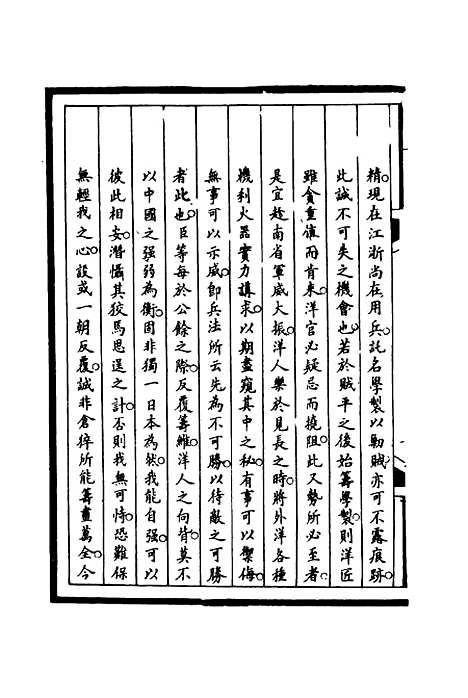 精。現在江浙尚在用兵。託名學製以勦賊亦可不露痕跡。
此誠不可失之機會也。若於賊平之後始籌學製。則洋匠
雖貪重值而肯來。洋官必疑忌而撓阻。此又勢所必至者。
是宜趁南省軍威大振。洋人樂於見長之時。將外洋各種
機利火器實力講求。以期盡窺其中之秘。有事可以禦侮。
無事可以示威。即兵法所云先為不可勝。以待敵之可勝
者此也。臣等每於公餘之際。反覆籌維。洋人之向背。莫不
以中國之强弱為衡。固非獨一日本為然。我能自强。可以
彼此相安。潛懾其狡焉思逞之計。否則我無可恃。恐難保
無輕我之心。設或一朝反覆。誠非倉猝所能籌畫萬全。今